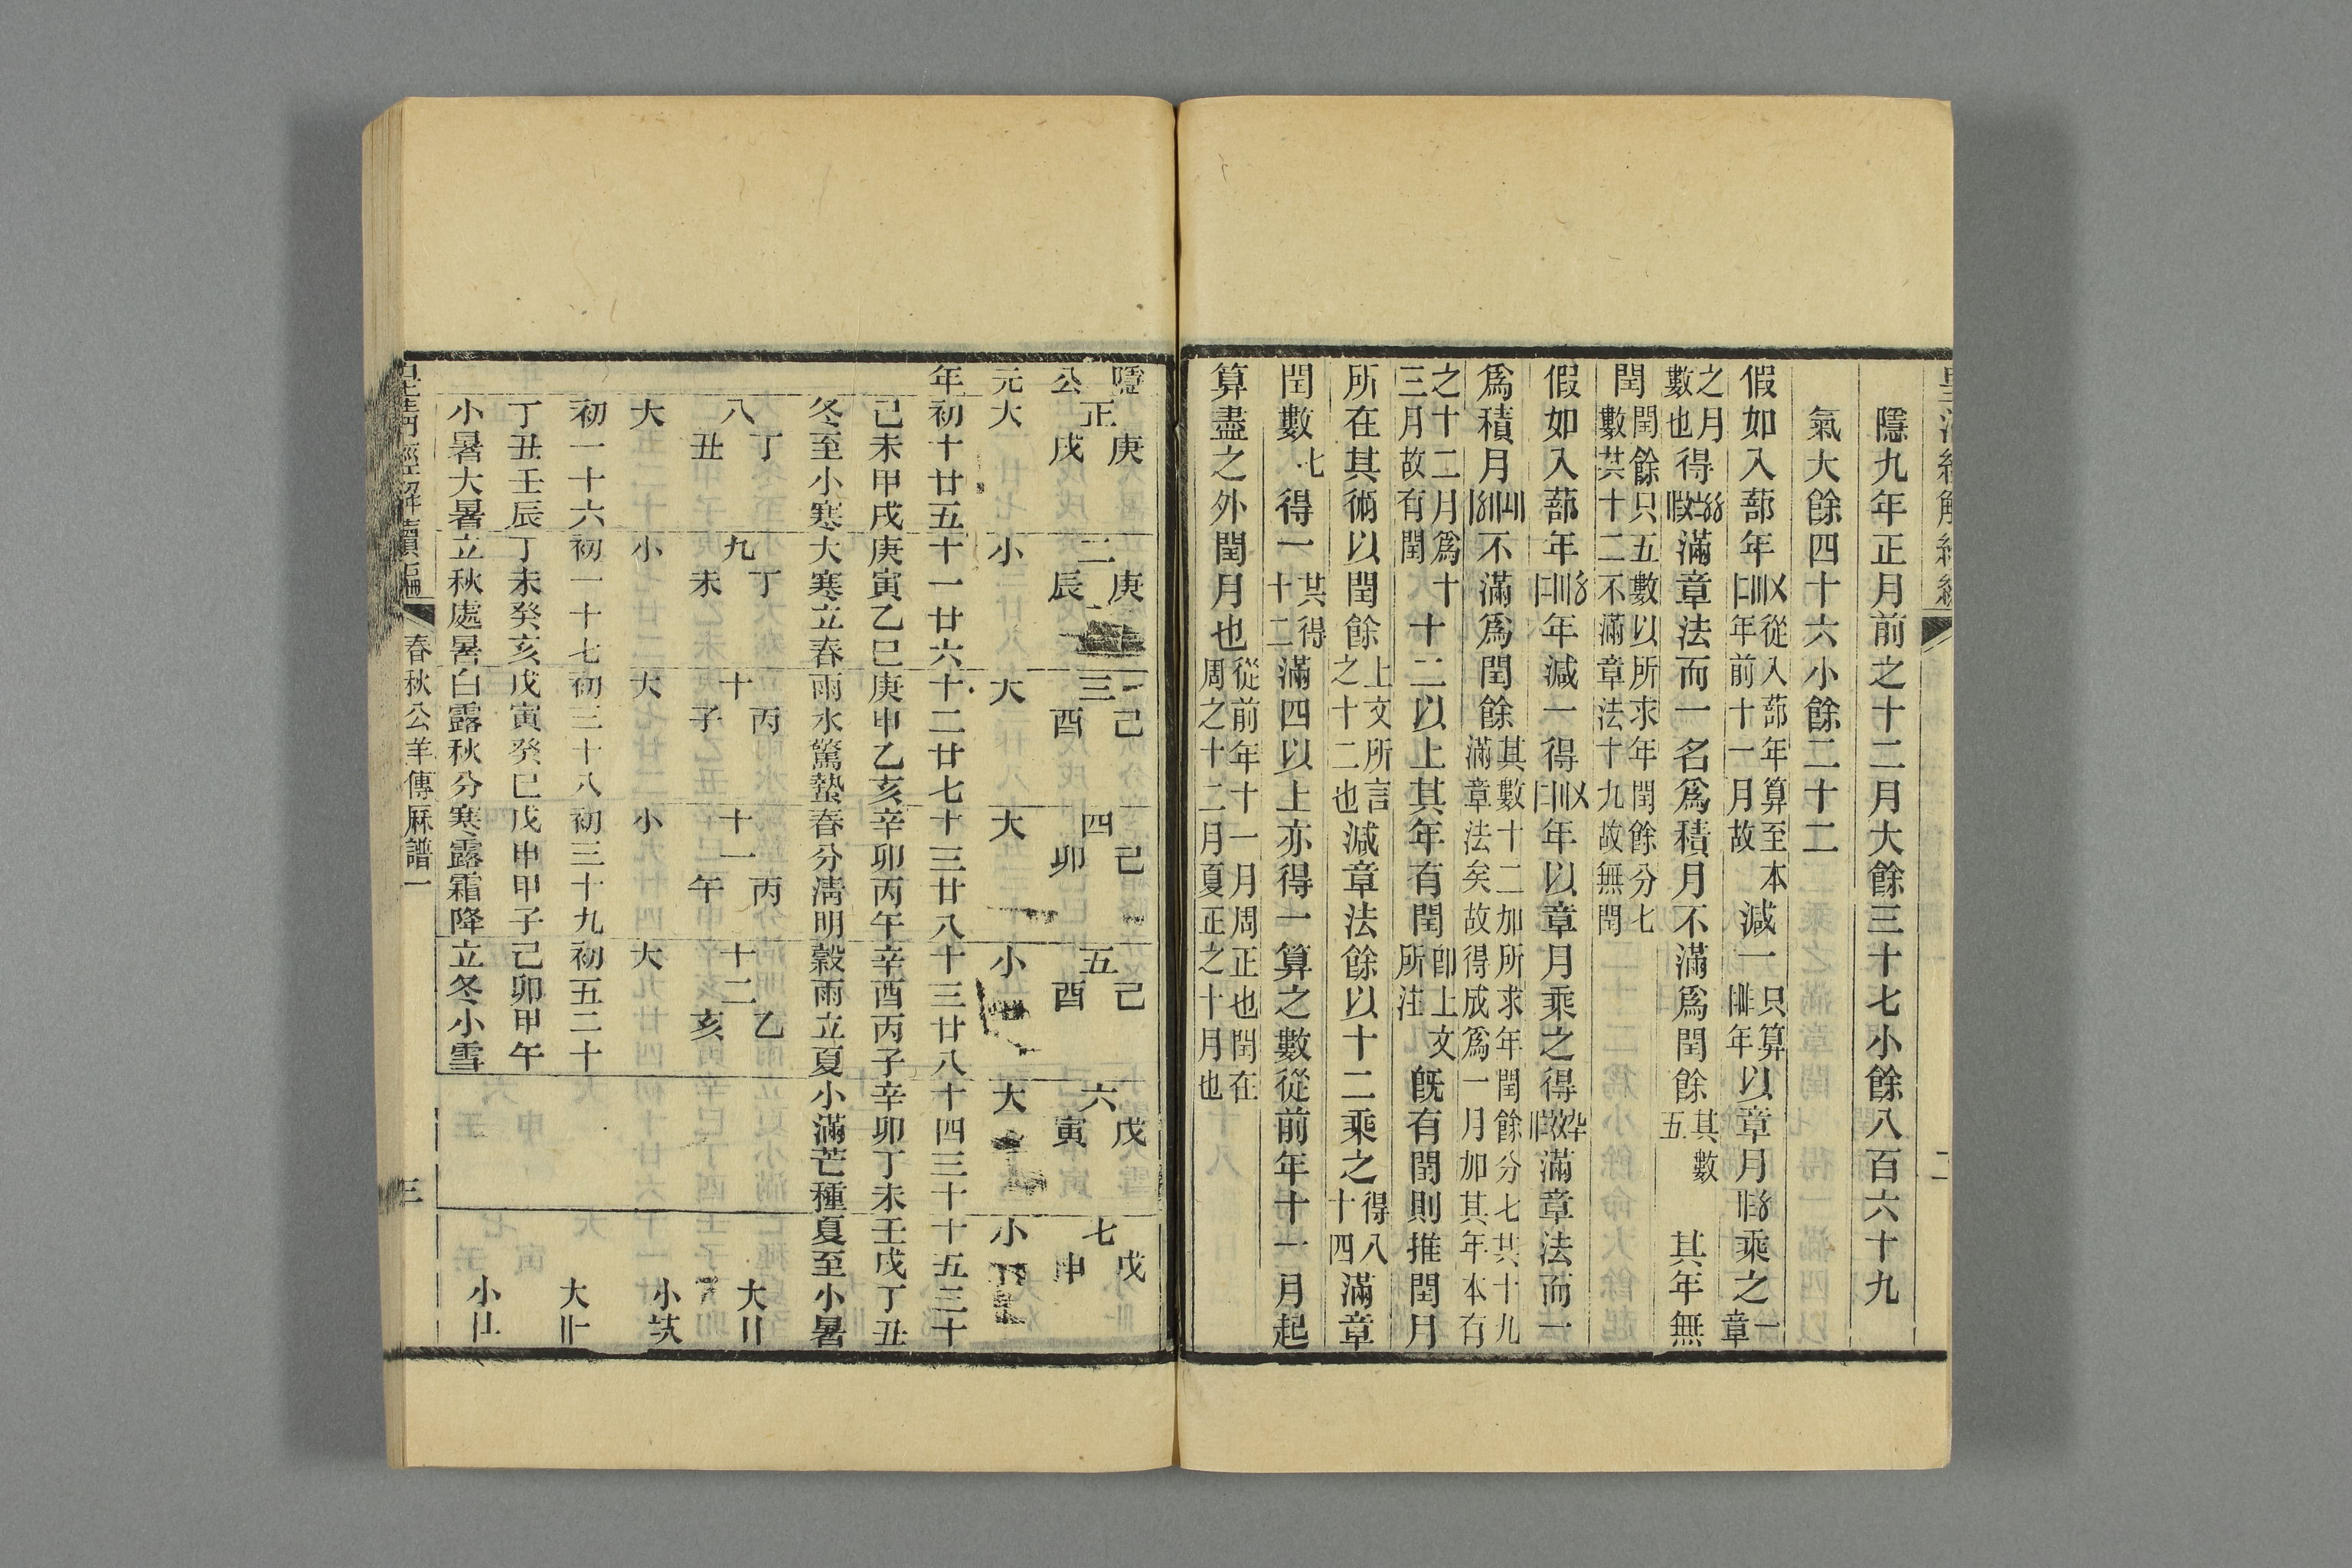 隱九年正月前之十二月大餘三十七小餘八百六十九
氣大餘四十六小餘二十二
假如入蔀年從入蔀年算至本年前十一月故減一只算年以章月乘之一章
之月數也得滿章法而一名爲積月不滿爲閏餘其數五其年無
閏閏餘只五數以所求年閏餘分七數共十二不滿章法十九故無閏
假如入蔀年年減一得年以章月乘之得滿章法而一
爲積月不滿爲閏餘其數十二加所求年閏餘分七共十九滿章法矣故得成爲一月加其年本有
之十二月爲十三月故有閏十二以上其年有閏卽上文所注旣有閏則推閏月
所在其術以閏餘上文所言之十二也減章法餘以十二乘之得八十四滿章
閏數七得一共得十二滿四以上亦得一算之數從前年十一月起
算盡之外閏月也從前年十一月周正也閏在周之十二月夏正之十月也
隱公元年
正庚戌大初十廿五己未甲戌冬至小寒
二庚辰小十一廿六庚寅乙巳大寒立春
三己酉大十二廿七庚申乙亥雨水驚蟄
四己卯大十三廿八辛卯丙午春分淸明
五己酉小十三廿八辛酉丙子穀雨立夏
六戊寅大十四三十辛卯丁未小滿芒種
七戊申小十五三十壬戌丁丑夏至小暑
八丁丑大初一十六丁丑壬辰小暑大暑
九丁未小初一十七丁未癸亥立秋處暑
十丙子大初三十八戊寅癸巳白露秋分
十一丙午小初三十九戊申甲子寒露霜降
十二乙亥大初五二十己卯甲午立冬小雪
大
小
大
小
春秋公羊傳厤譜一
三